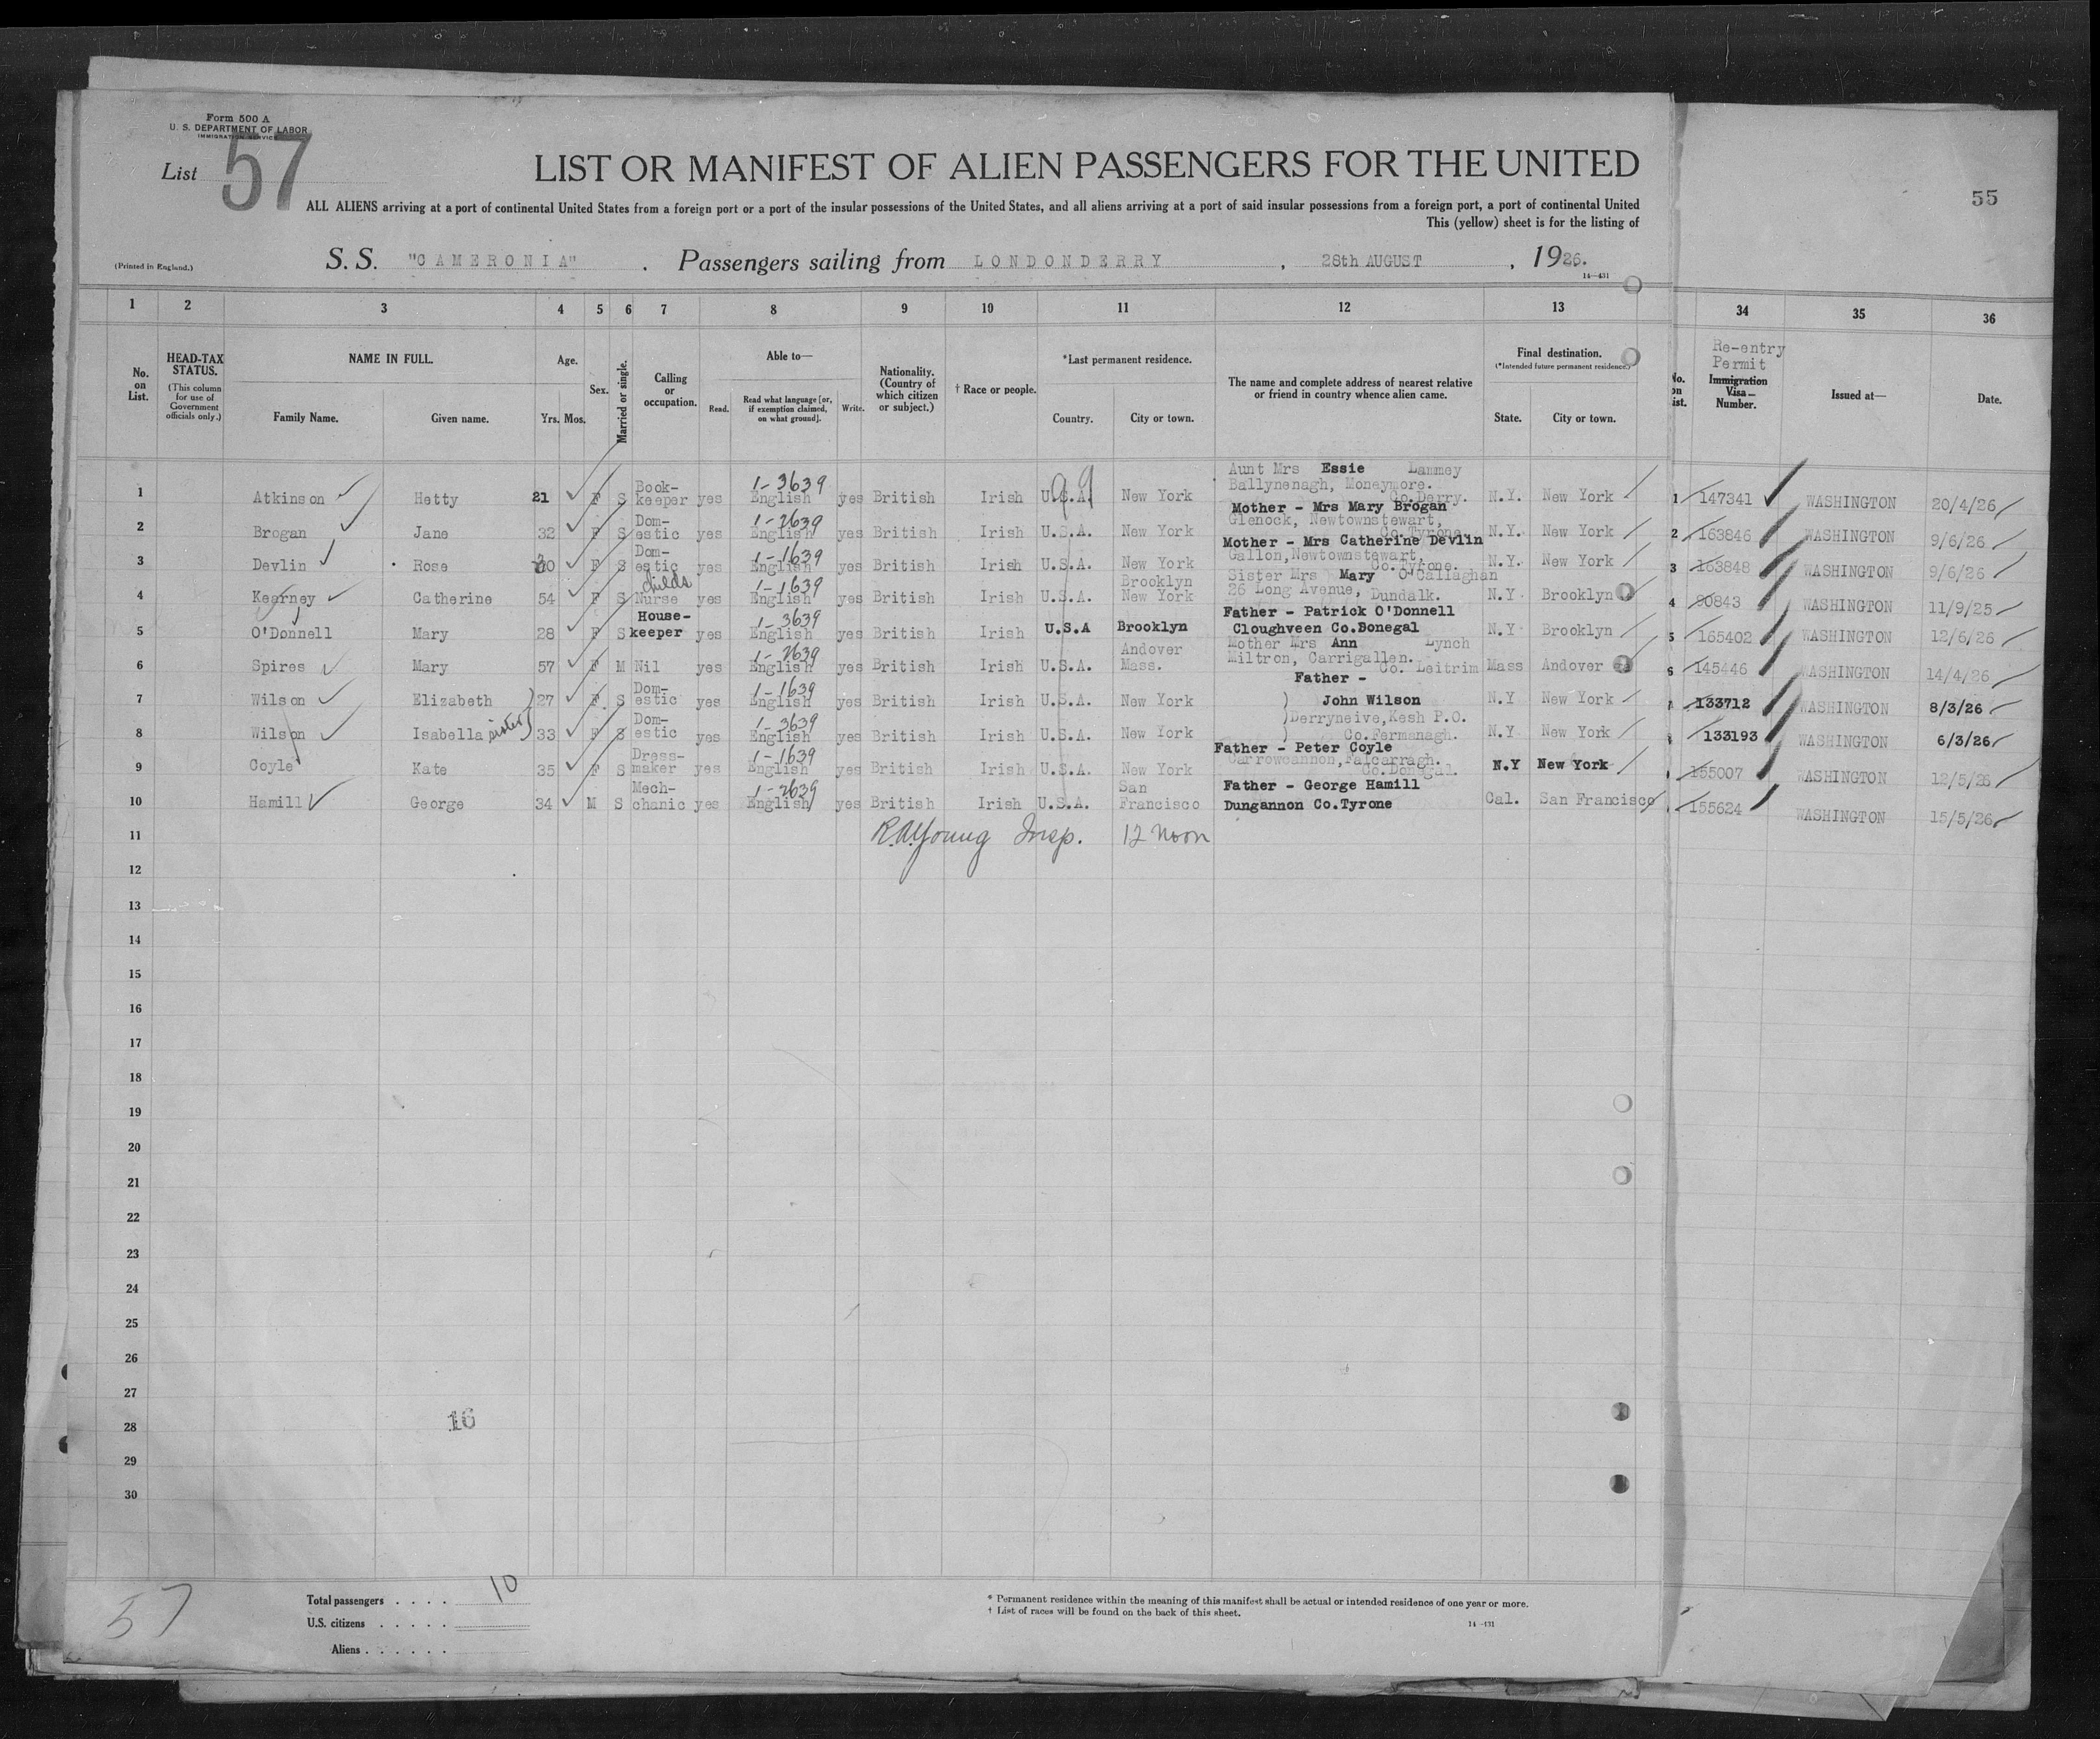 Form 500 A
U. S. DEPARTMENT OF LABOR
IMMIGRATION SERVICE
List 57
LIST OR MANIFEST OF ALIEN PASSENGERS FOR THE UNITED
55
ALL ALIENS arriving at a port of continental United States from a foreign port or a port of the insular possessions of the United States, and all aliens arriving at a port of said insular possessions from a foreign port, a port of continental United
This (yellow) sheet is for the listing of
(Printed in England.)
S. S. "CAMERONIA" . Passengers sailing from LONDONDERRY , 28th AUGUST , 1926.
14—431
1 2 3 4 5 6 7 8 9 10 11 12 13 34 35 36
No. on List.
HEAD-TAX STATUS.
(This column for use of Government officials only.)
NAME IN FULL.
Family Name. Given name.
Age.
Yrs. Mos.
Sex.
Married or single.
Calling or occupation.
Able to—
Read. Read what language [or, if exemption claimed, on what ground]. Write.
Nationality. (Country of which citizen or subject.)
† Race or people.
*Last permanent residence.
Country. City or town.
The name and complete address of nearest relative or friend in country whence alien came.
Final destination.
(*Intended future permanent residence.)
State. City or town.
No. on List.
Re-entry Permit
Immigration Visa Number.
Issued at—
Date.
99
1 Atkinson Hetty 21 F S Book-keeper yes 1-3639 English yes British Irish U.S.A. New York Aunt Mrs Essie Lammey Ballynenagh, Moneymore. Co.Derry. N.Y. New York 1 147341 WASHINGTON 20/4/26
2 Brogan Jane 32 F S Dom-estic yes 1-2639 English yes British Irish U.S.A. New York Mother - Mrs Mary Brogan Glenock, Newtownstewart, Co.Tyrone. N.Y. New York 2 163846 WASHINGTON 9/6/26
3 Devlin Rose 30 F S Dom-estic yes 1-1639 English yes British Irish U.S.A. New York Mother - Mrs Catherine Devlin Gallon, Newtownstewart, Co.Tyrone. N.Y. New York 3 163848 WASHINGTON 9/6/26
4 Kearney Catherine 54 F S Childs Nurse yes 1-1639 English yes British Irish U.S.A. Brooklyn New York Sister Mrs Mary O'Callaghan 26 Long Avenue, Dundalk. N.Y. Brooklyn 4 90843 WASHINGTON 11/9/25
5 O'Donnell Mary 28 F S House-keeper yes 1-3639 English yes British Irish U.S.A Brooklyn Father - Patrick O'Donnell Cloughveen Co.Donegal N.Y Brooklyn 5 165402 WASHINGTON 12/6/26
6 Spires Mary 57 F M Nil yes 1-2639 English yes British Irish U.S.A. Andover Mass. Mother Mrs Ann Lynch Miltron, Carrigallen. Co. Leitrim Mass Andover 6 145446 WASHINGTON 14/4/26
7 Wilson Elizabeth 27 F S Dom-estic yes 1-1639 English yes British Irish U.S.A. New York Father - ) John Wilson N.Y New York 133712 WASHINGTON 8/3/26
8 Wilson Isabella sister 33 F S Dom-estic yes 1-3639 English yes British Irish U.S.A. New York )Derryneive, Kesh P.O. ) Co.Fermanagh. N.Y New York 133193 WASHINGTON 6/3/26
9 Coyle Kate 35 F S Dress-maker yes 1-1639 English yes British Irish U.S.A. New York Father - Peter Coyle Carrowcannon, Falcarragh. Co.Donegal. N.Y New York 155007 WASHINGTON 12/5/26
10 Hamill George 34 M S Mech-chanic yes 1-2639 English yes British Irish U.S.A. San Francisco Father - George Hamill Dungannon Co.Tyrone Cal. San Francisco 155624 WASHINGTON 15/5/26
11 R.A.Young Insp. 12 noon
12
13
14
15
16
17
18
19
20
21
22
23
24
25
26
27
28
16
29
30
57
Total passengers . . . . 10
U.S. citizens . . . . .
Aliens . . . . . .
* Permanent residence within the meaning of this manifest shall be actual or intended residence of one year or more.
† List of races will be found on the back of this sheet.
14—431